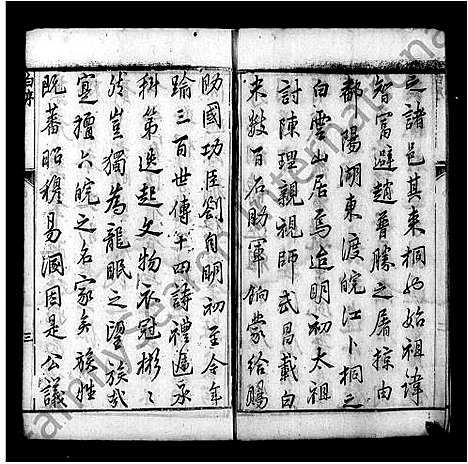 之諸邑其東桐始祖諱
智富避趙普勝之屠掠由
鄱陽湖東渡皖江卜桐之
白雲山居焉迨明初太祖
討陳理親視師武昌載白
米數百石助軍餉蒙給賜
助國功臣劄自明初至今年
踰三百世傳十四詩禮遞承
科第迭起文物衣冠彬〻
然豈獨為龍眠之望族哉
寔擅六皖之名家矣族姓
既蕃昭穆易溷因是公議
三
FamilySearch International